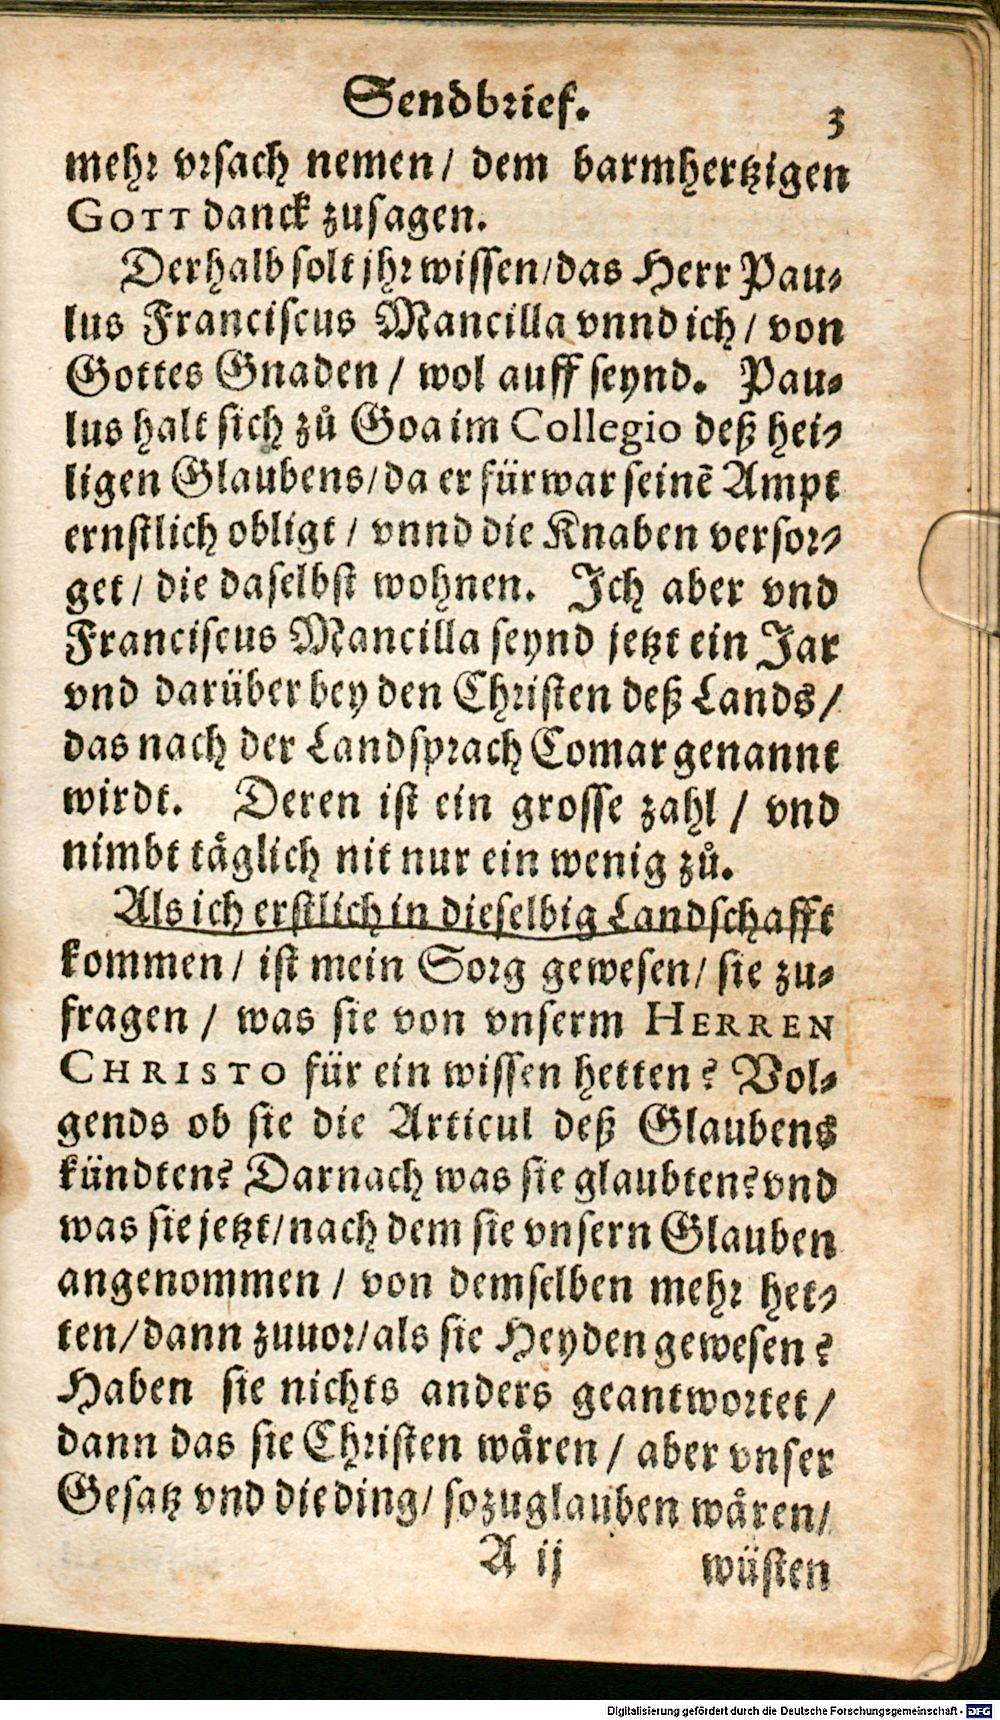 Sendbrief.
3
mehr vrsach nemen/ dem barmhertzigen
GOTT danck zusagen.
Derhalb solt jhr wissen/das Herr Pau-
lus Franciscus Mancilla vnnd ich/ von
Gottes Gnaden/ wol auff seynd. Pau-
lus halt sich zů Goa im Collegio deß hei-
ligen Glaubens/da er fürwar seinē Ampt
ernstlich obligt/ vnnd die Knaben versor-
get/ die daselbst wohnen. Ich aber vnd
Franciscus Mancilla seynd jetzt ein Jar
vnd darüber bey den Christen deß Lands/
das nach der Landsprach Comar genannt
wirdt. Deren ist ein grosse zahl/ vnd
nimbt tåglich nit nur ein wenig zů.
Als ich erstlich in dieselbig Landschafft
kommen/ ist mein Sorg gewesen/ sie zu-
fragen/ was sie von vnserm HERREN
CHRISTO für ein wissen hetten? Vol-
gends ob sie die Articul deß Glaubens
kündten? Darnach was sie glaubten? vnd
was sie jetzt/nach dem sie vnsern Glauben
angenommen/ von demselben mehr het-
ten/dann zuuor/als sie Heyden gewesen?
Haben sie nichts anders geantwortet/
dann das sie Christen wåren/ aber vnser
Gesatz vnd die ding/ so zuglauben wåren/
A ij
wüsten
Digitalisierung gefördert durch die Deutsche Forschungsgemeinschaft - DFG